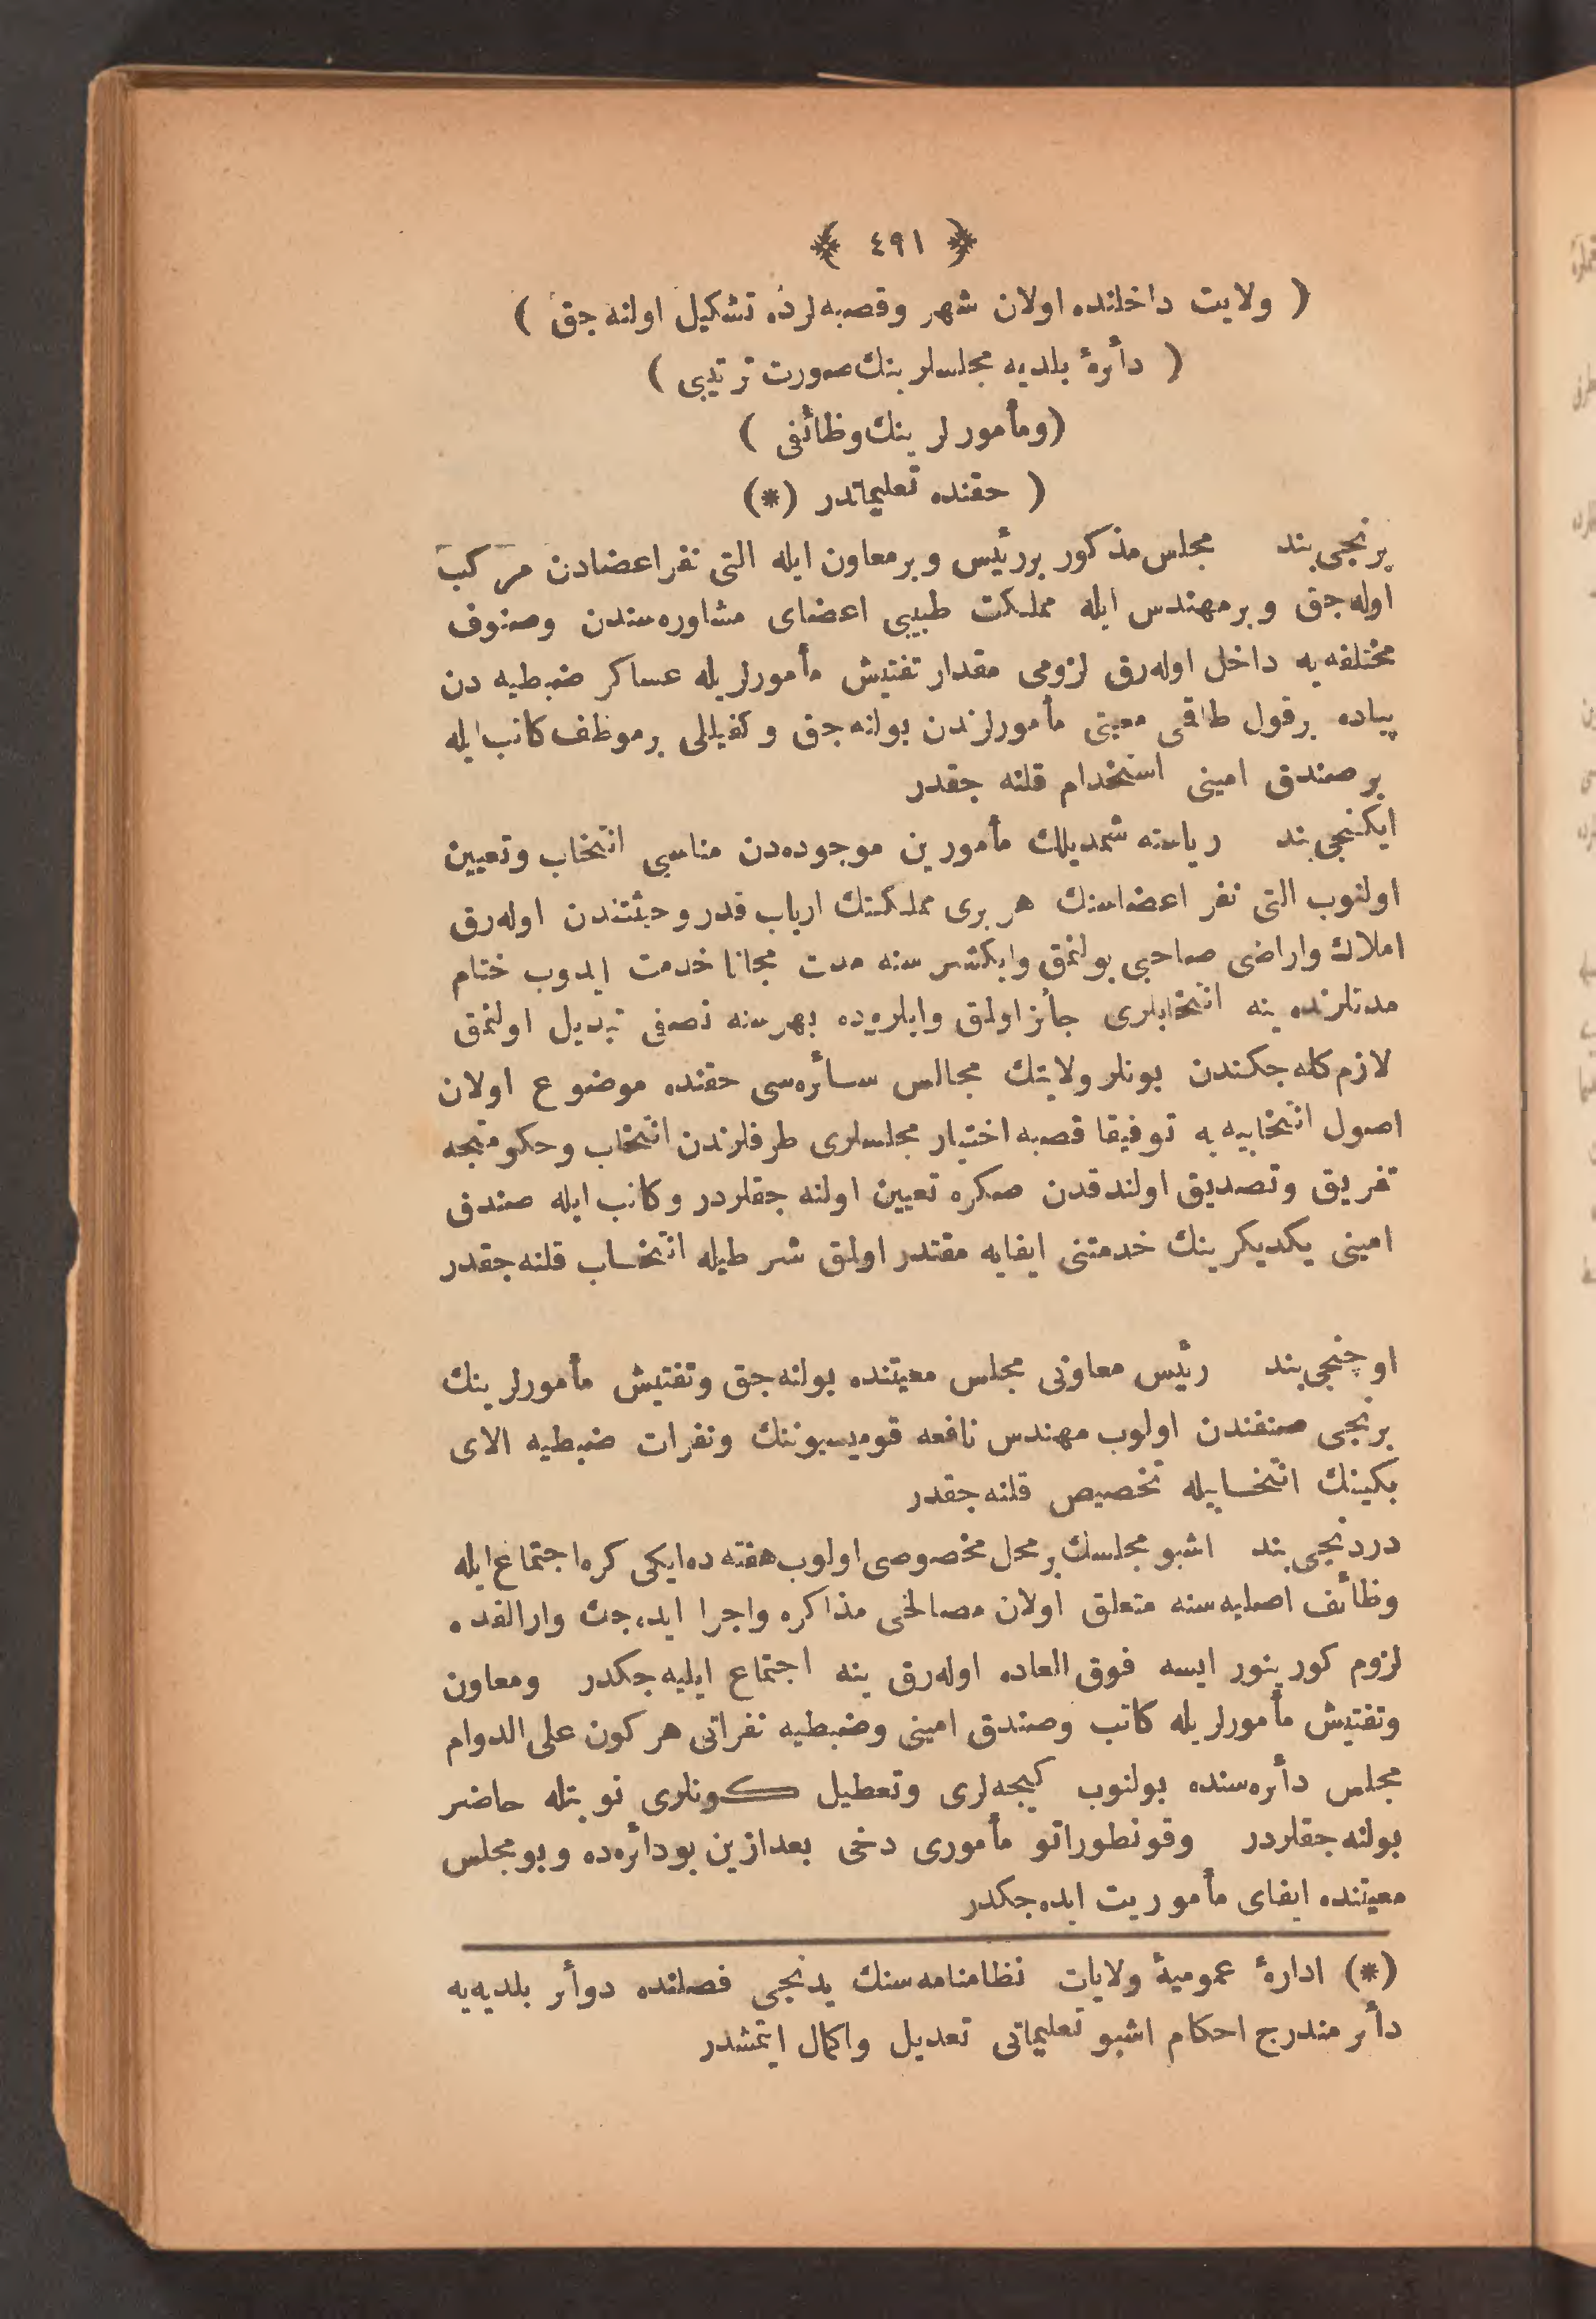 ﴿ ٤٩١ ﴾
( ولايت داخلنده اولان شهر وقصبه‌لرده تشكيل اولنه جق )
( دأرهٔ بلديه مجلسلرينك صورت ترتيبى )
(ومأمورلرينك وظائفى )
( حقنده تعليماتدر (*)
برنجى بند مجلس مذكور بررئيس وبرمعاون ايله التى نفراعضادن مركب
اوله‌جق وبرمهندس ايله مملكت طبيبى اعضاى مشاوره‌سندن وصنوف
مختلفه‌يه داخل اوله‌رق لزومى مقدار تفتيش مأمورلريله عساكر ضبطيه دن
پياده برقول طاقمى معيتى مأمورلرندن بولنه‌جق وكفيللى برموظف كاتب ايله
برصندق امينى استخدام قلنه جقدر
ايكنجى بند رياسته شمديلك مأمورين موجوده‌دن مناسبى انتخاب وتعيين
اولنوب التى نفر اعضاسنك هر برى مملكتك ارباب قدر وحيثتندن اوله‌رق
املاك واراضى صاحبى بولنمق وايكشر سنه مدت مجانا خدمت ايدوب ختام
مدتلرنده ينه انتخابلرى جأز اولمق وايلروده بهرسنه نصفى تبديل اولنمق
لازم كله‌جكندن بونلر ولايتك مجالس سأره‌سى حقنده موضوع اولان
اصول انتخابيه‌يه توفيقا قصبه اختيار مجلسلرى طرفلرندن انتخاب وحكومتجه
تفريق وتصديق اولندقدن صكره تعيين اولنه جقلردر وكاتب ايله صندق
امينى يكديكرينك خدمتنى ايفايه مقتدر اولمق شرطيله انتخاب قلنه‌جقدر
اوچنجى بند رئيس معاونى مجلس معيتنده بولنه‌جق وتفتيش مأمورلرينك
برنجى صنفندن اولوب مهندس نافعه قوميسيوننك ونفرات ضبطيه الاى
بكينك انتخابيله تخصيص قلنه‌جقدر
دردنجى بند اشبو مجلسك برمحل مخصوصى اولوب هفته ده‌ايكى كره‌اجتماع ايله
وظائف اصليه‌سنه متعلق اولان مصالحى مذاكره واجرا ايده‌جك وارالقده
لزوم كورينور ايسه فوق العاده اوله‌رق ينه اجتماع ايليه‌جكدر ومعاون
وتفتيش مأمورلريله كاتب وصندق امينى وضبطيه نفراتى هركون على الدوام
مجلس دأره‌سنده بولنوب كيجه‌لرى وتعطيل كونلرى نوبتله حاضر
بولنه‌جقلردر وقونطوراتو مأمورى دخى بعدازين بودأره‌ده وبومجلس
معيتنده ايفاى مأموريت ايده‌جكدر
(*) ادارهٔ عموميهٔ ولايات نظامنامه‌سنك يدنجى فصلنده دوأر بلديه‌يه
دأر مندرج احكام اشبو تعليماتى تعديل واكمال ايتمشدر